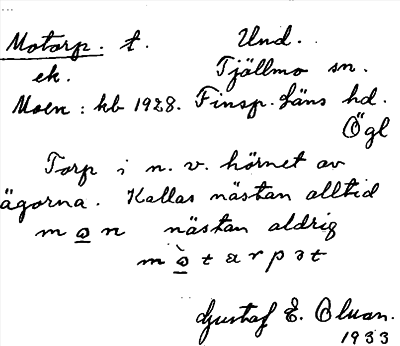 Motorp. t. Und.
ek. Tjällmo sn.
Moen: kb 1928. Finsp. läns hd.
Ögl
Torp i n. v. hörnet av
ägorna. Kallas nästan alltid
m o n nästan aldrig
m ò t a r p ə t
Gustaf E. Olsson.
1933